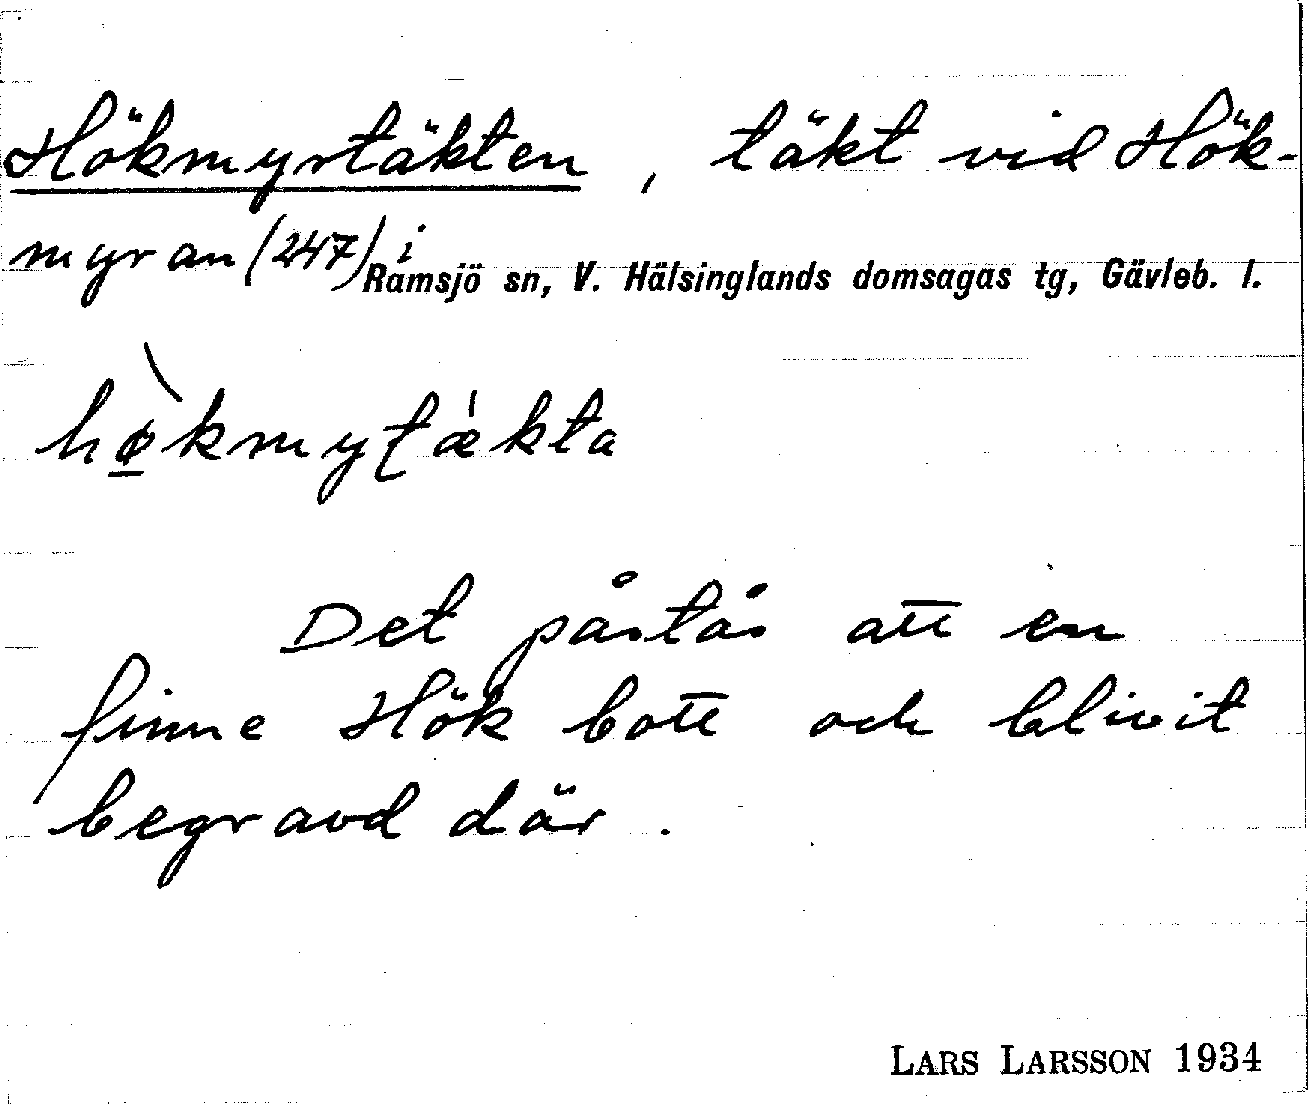 Hökmyrtäkten, täkt vid Hök-
myran (247) i
Ramsjö sn, V. Hälsinglands domsagas tg, Gävleb. l.
hø̱̀kmyʈæ̍kta
Det påstås att en
finne Hök bott och blivit
begravd där.
LARS LARSSON 1934